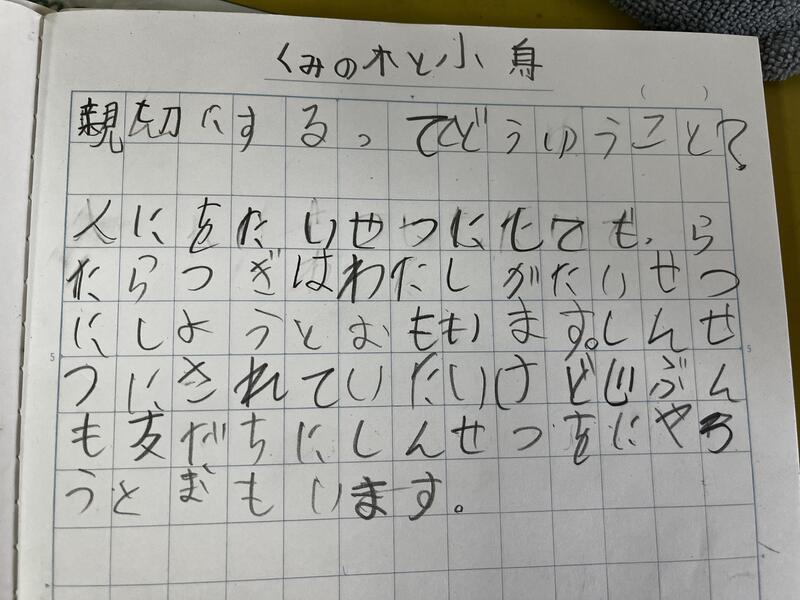 くみの木と小鳥
( )
親切にするってどうゆうこと?
人にをたいせつにしても、ら
たらつぎはわたしがたいせつ
にしようとおももいます。しんせ
5
5
つにされていたいけどじぶん
も友だちにしんせつをにやろ
うとおもいます。